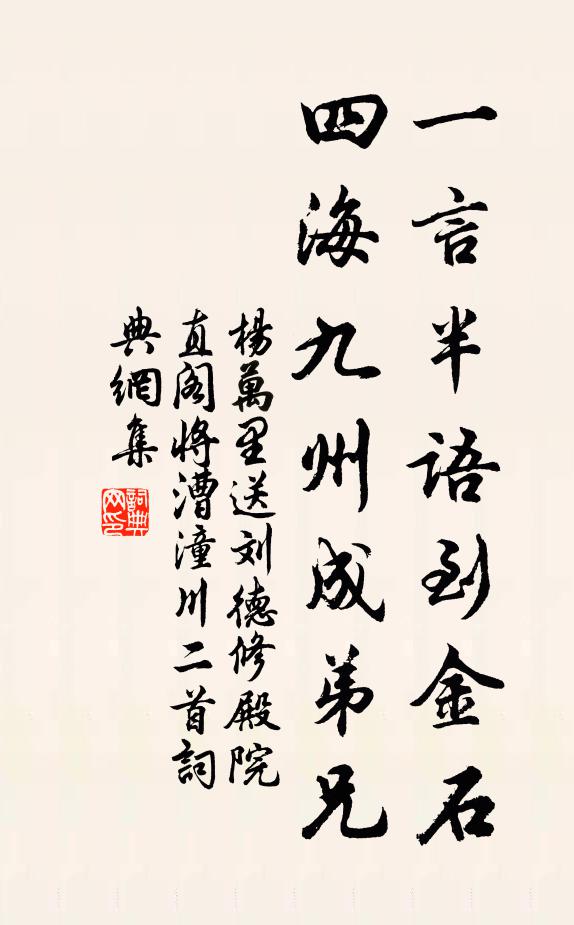 一言半语到金石
四海九州成弟兄
楊萬里送刘德修殿院
直阁将漕潼川二首詞
典網集
詞典网印